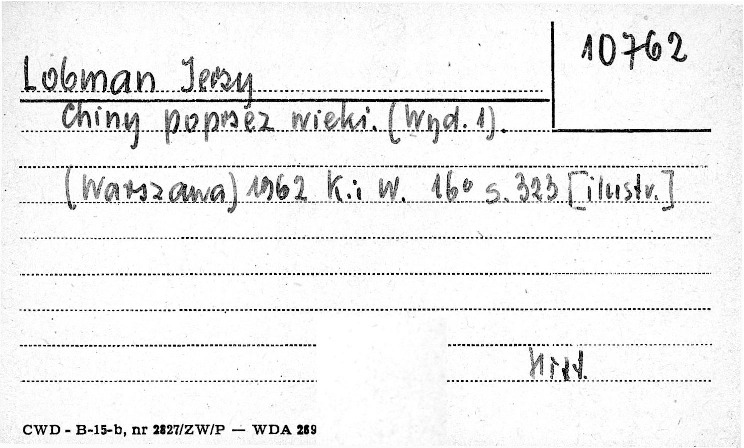 10762
Lobman Jerzy
Chiny poprzez wieki. (Wyd. 1).
(Warszawa) 1962 K. i W. 16° s. 323 [ilustr.]
Hist.
CWD - B-15-b, nr 2827/ZW/P — WDA 269